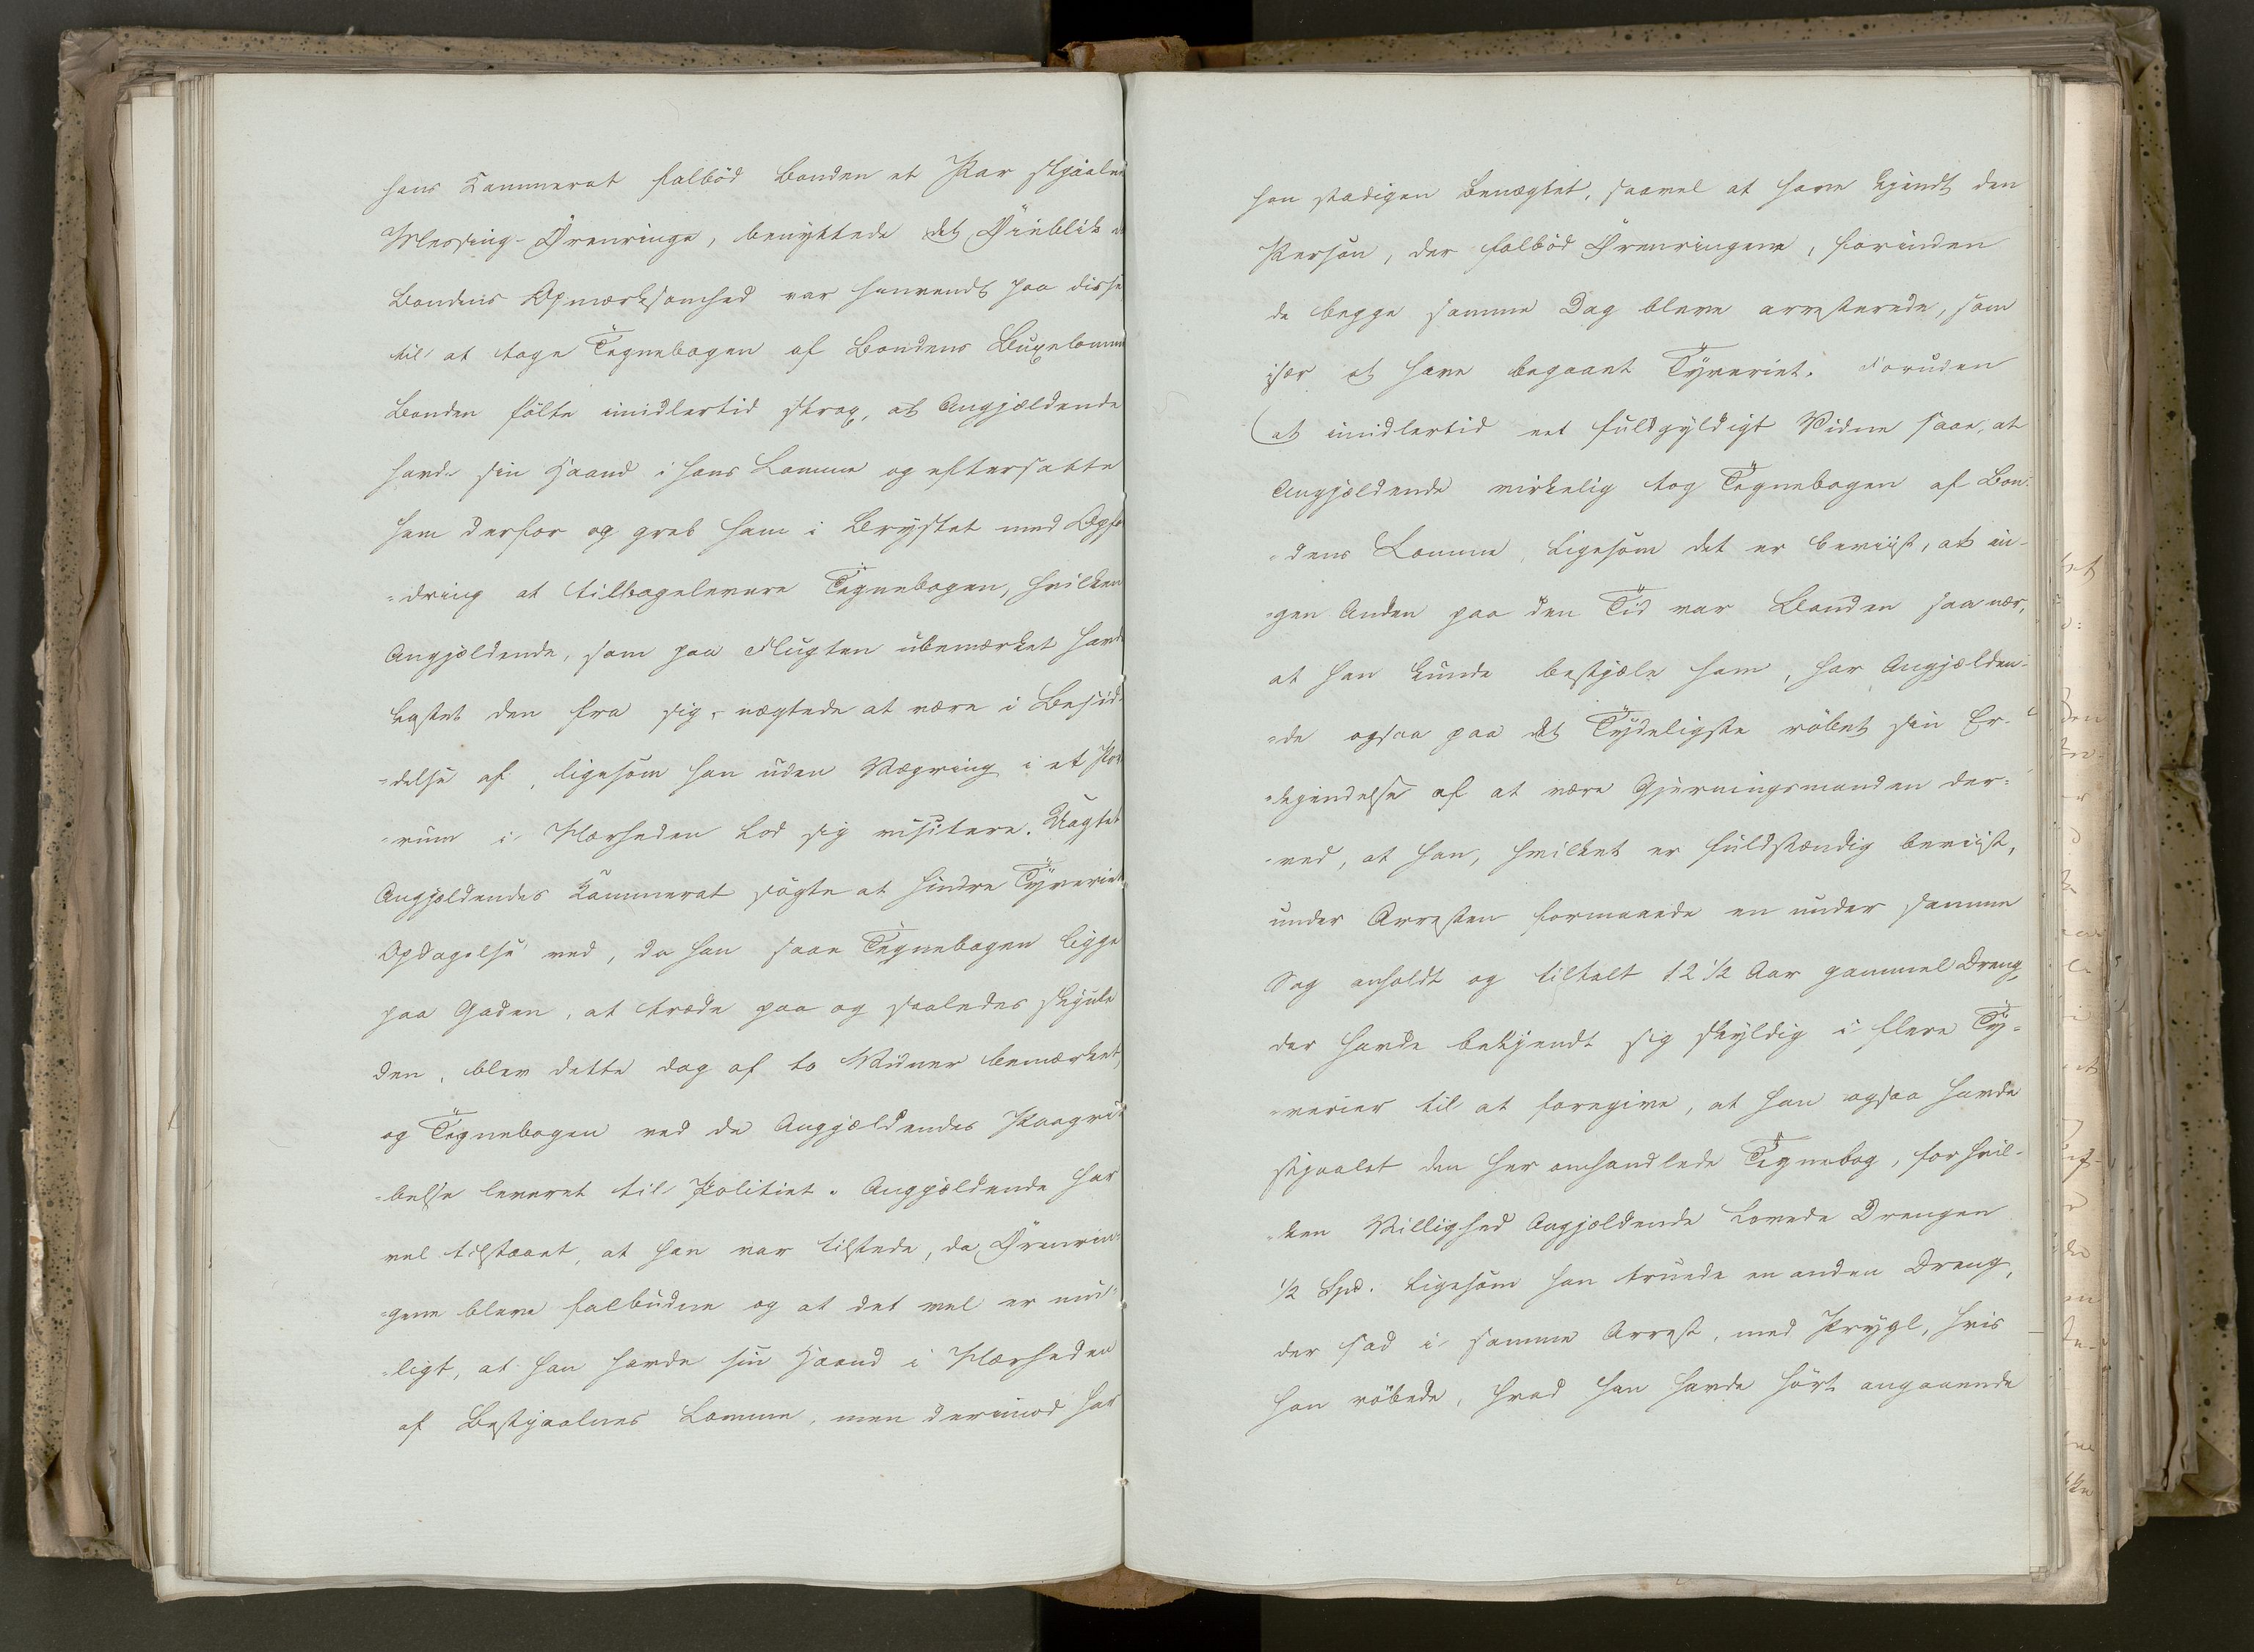 hans Kammerat falbød Bonden et Par stjaalne
Messing-Örenringe, benyttede det Öieblik at
Bondens Opmærksomhed var henvendt paa disse
til at tage Tegnebogen af Bondens Buxelomme
Bonden fölte imidlertid strax, at Angjældende
havde sin Haand i hans Lomme og eftersatte
ham derfor og greb ham i Brystet med Opfo
-dring at tilbagelevere Tegnebogen, hvilken
Angjældende, som paa Flugten ubemærket havde
kastet den fra sig, nægtede at være i Besid-
-delse af, ligesom han uden Vægring i et Por
-rum i Nærheden lod sig visitere. Uagtet
Angjældendes Kammerat søgte at hindre Tyveriets
Opdagelse ved, da han saae Tegnebogen ligge
paa Gaden, at træde paa og saaledes skjule
den, blev dette dog af to Vidner bemærket,
og Tegnebogen ved de Angjældendes Paagri-
-belse leveret til Politiet. Angjældende har
vel tilstaaet, at han var tilstede, da Örenrin-
-gene bleve falbudne og at det vel er mu-
-ligt, at han havde sin Haand i Nærheden
af Bestjaalnes Lomme, men derimod har
han stadigen benægtet, saavel at have kjendt den
Person, der falböd Örenringene, forinden
de begge samme Dag bleve arresterede, som
især at have begaaet Tyveriet. Foruden
at imidlertid eet fuldgyldigt Vidne saae, at
Angjældende virkelig tog Tegnebogen af Bon-
-dens Lomme, ligesom det er beviist, at in-
-gen Anden paa den Tid var Bonden saa nær,
at han kunde bestjæle ham, har Angjælden-
-de ogsaa paa det Tydeligste röbet sin Er-
-kjendelse af at være Gjerningsmanden der-
-ved, at han, hvilket er fuldstændig beviist,
under Arresten formaaede en under samme
Sag anholdt og tiltalt 12 1/2 Aar gammel Dreng,
der havde bekjendt sig skyldig i flere Ty-
-verier til at foregive, at han ogsaa havde
stjaalet den her omhandlede Tegnebog, for hvil-
-ken Villighed Angjældende lovede Drengen
1/2 Spd. ligesom han truede en anden Dreng,
der sad i samme Arrest, med Prygl, hvis
han röbede, hvad han havde hört angaaende